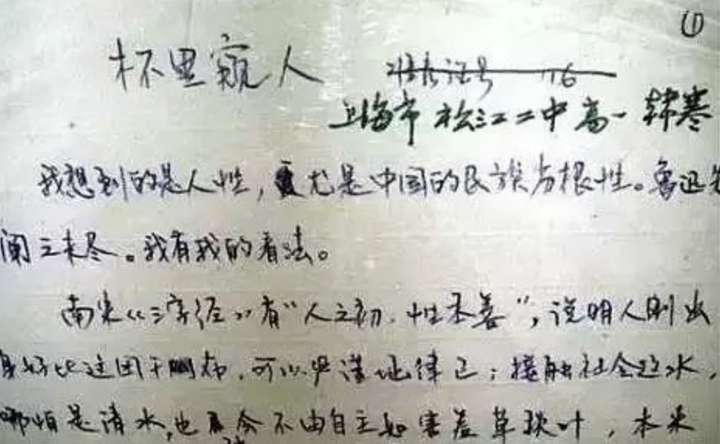 ①
杯里窥人
准考证号 116
上海市松江二中高一韩寒
我想到的是人性,尤是中国的民族劣根性。鲁迅先
阐之未尽。我有我的看法。
南宋《三字经》有“人之初,性本善”,说明人刚出
身好比这团干布,可以严谨地律己;接触社会这水,
哪怕是清水,也会不由自主如害羞草肢叶,本来